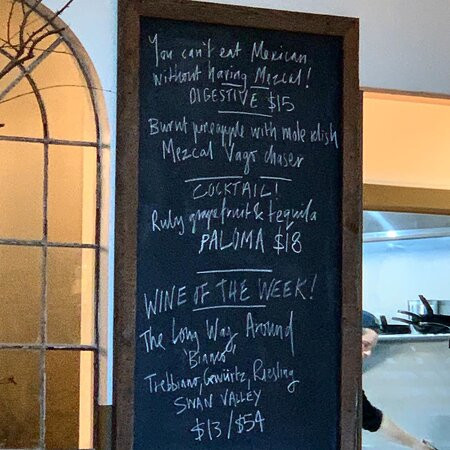 You can't eat Mexican
without having Mezcal!
DIGESTIVE $15
Burnt pineapple with mole dish
Mezcal Vago chaser
COCKTAIL!
Ruby grapefruit & tequila
PALOMA $18
WINE OF THE WEEK!
The Long Way Around
'Bianco'
Trebbiano, Gewürtz, Riesling
SWAN VALLEY
$13/$54